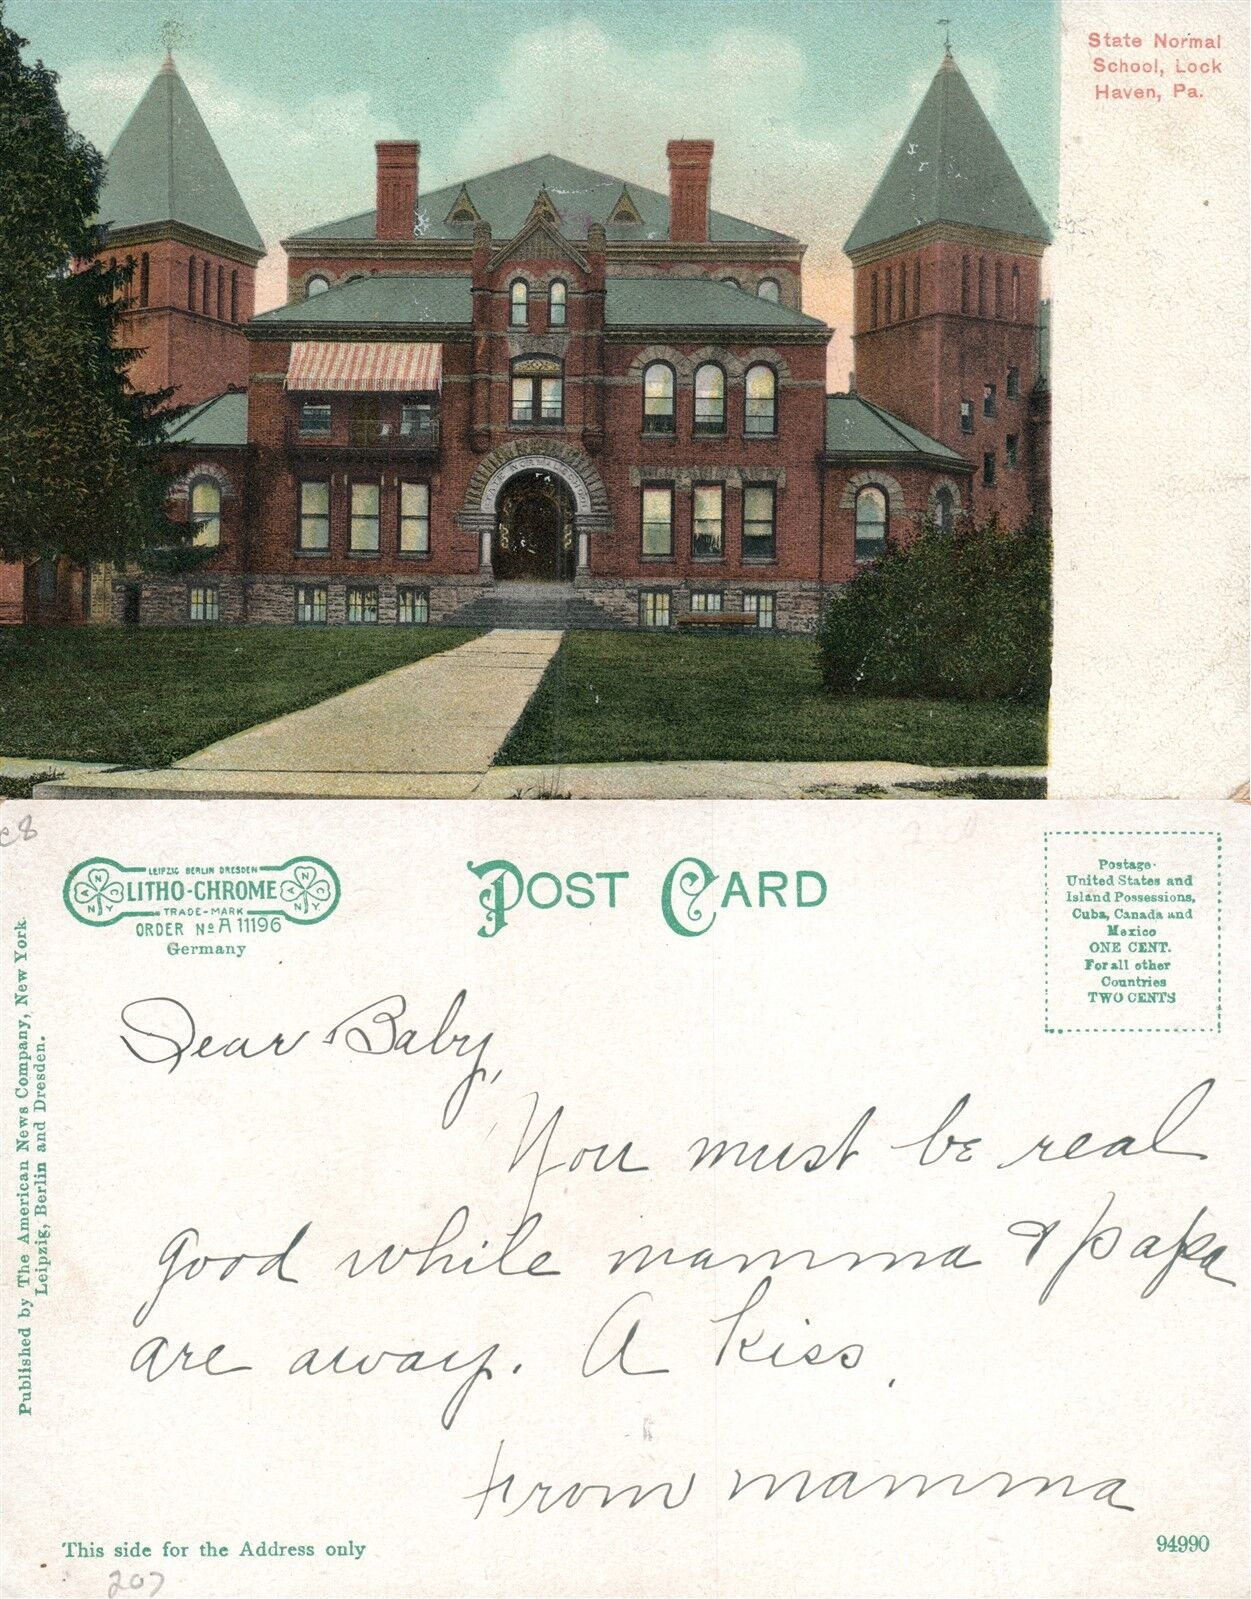 State Normal
School, Lock
Haven, Pa.
c8
LEIPZIG BERLIN DRESDEN
LITHO-CHROME
TRADE-MARK
ORDER No A 11196
Germany
POST CARD
Postage-
United States and
Island Possessions,
Cuba, Canada and
Mexico
ONE CENT.
For all other
Countries
TWO CENTS
Published by The American News Company, New York
Leipzig, Berlin and Dresden.
Dear Baby,
You must be real
good while mamma & papa
are away. A kiss.
From mamma
This side for the Address only
94990
207